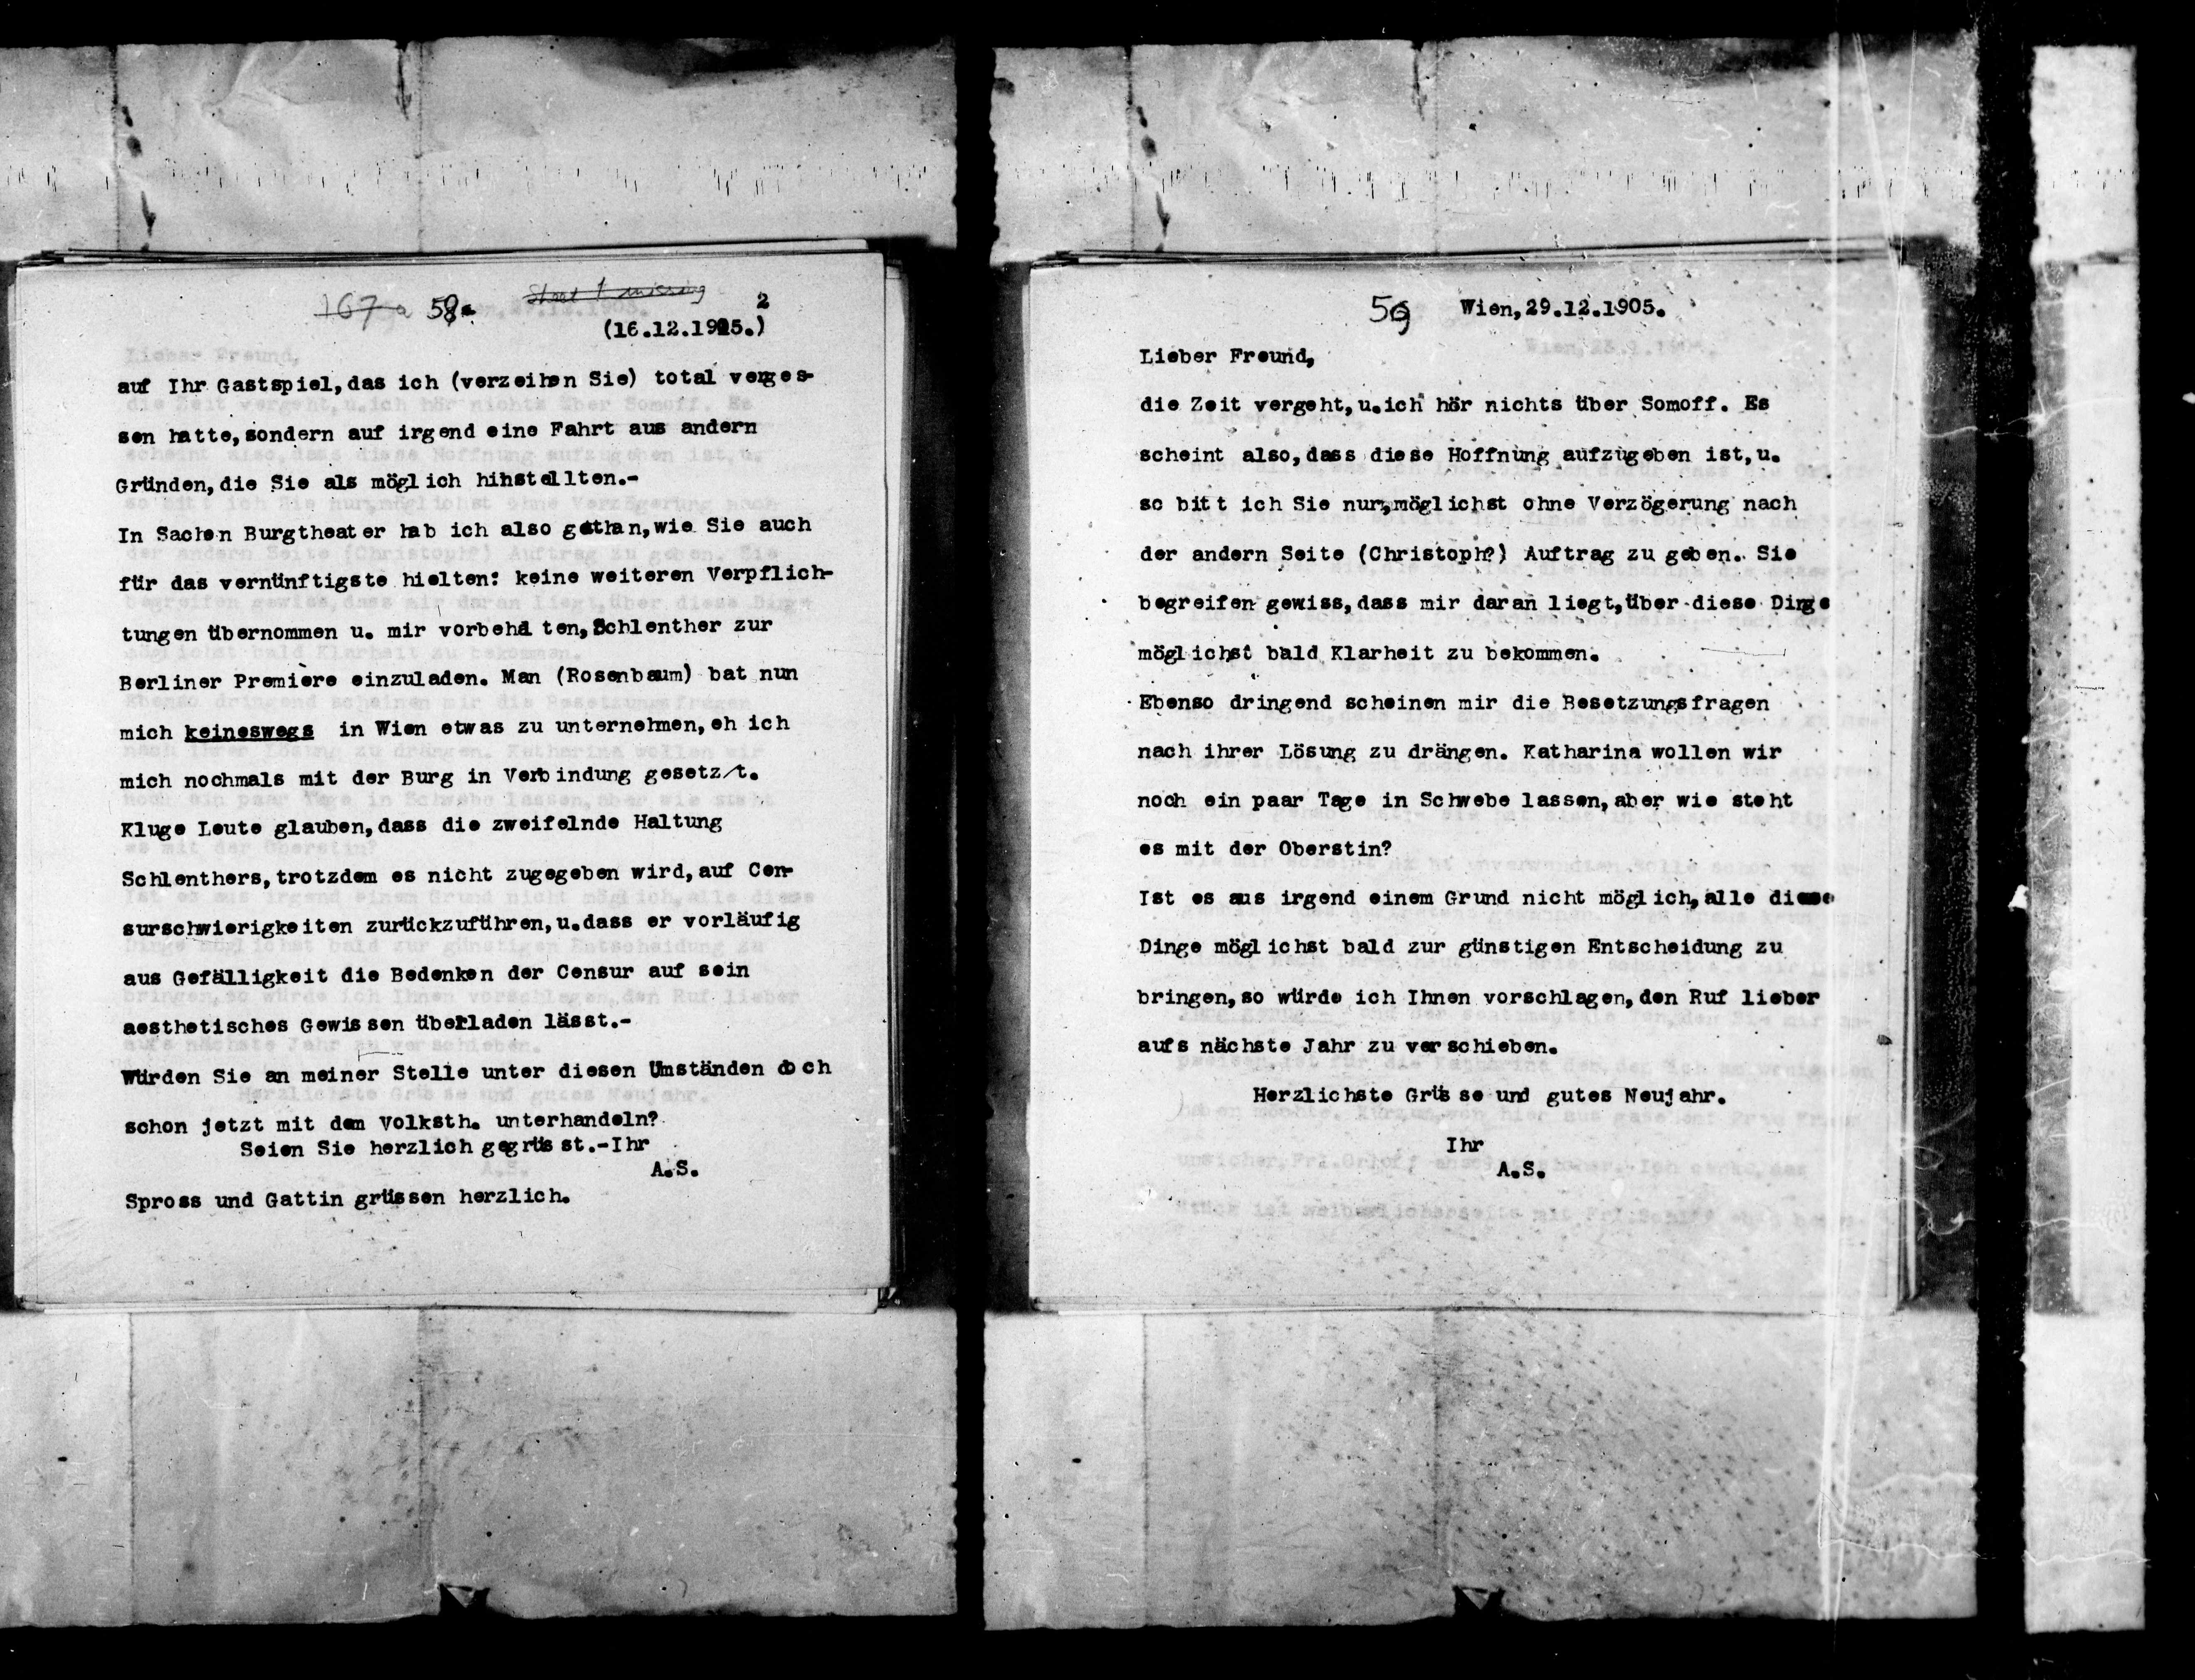 167a 58a Sheet 1 missing 2
(16.12.1905.)
auf Ihr Gastspiel, das ich (verzeihen Sie) total verges-
sen hatte, sondern auf irgend eine Fahrt aus andern
Gründen, die Sie als möglich hinstellten.-
In Sachen Burgtheater hab ich also gethan, wie Sie auch
für das vernünftigste hielten: keine weiteren Verpflich-
tungen übernommen u. mir vorbehalten, Schlenther zur
Berliner Première einzuladen. Man (Rosenbaum) bat nun
mich keineswegs in Wien etwas zu unternehmen, eh ich
mich nochmals mit der Burg in Verbindung gesetzt.
Kluge Leute glauben, dass die zweifelnde Haltung
Schlenthers, trotzdem es nicht zugegeben wird, auf Cen-
surschwierigkeiten zurückzuführen, u. dass er vorläufig
aus Gefälligkeit die Bedenken der Censur auf sein
aesthetisches Gewissen überladen lässt.-
Würden Sie an meiner Stelle unter diesen Umständen doch
schon jetzt mit dem Volksth. unterhandeln?
Seien Sie herzlich gegrüsst.-Ihr
A.S.
Spross und Gattin grüssen herzlich.
59 Wien, 29.12.1905.
Lieber Freund,
die Zeit vergeht, u. ich hör nichts über Somoff. Es
scheint also, dass diese Hoffnung aufzugeben ist, u.
so bitt ich Sie nur, möglichst ohne Verzögerung nach
der andern Seite (Christoph?) Auftrag zu geben. Sie
begreifen gewiss, dass mir daran liegt, über diese Dinge
möglichst bald Klarheit zu bekommen.
Ebenso dringend scheinen mir die Besetzungsfragen
nach ihrer Lösung zu drängen. Katharina wollen wir
noch ein paar Tage in Schwebe lassen, aber wie steht
es mit der Oberstin?
Ist es aus irgend einem Grund nicht möglich, alle diese
Dinge möglichst bald zur günstigen Entscheidung zu
bringen, so würde ich Ihnen vorschlagen, den Ruf lieber
aufs nächste Jahr zu verschieben.
Herzlichste Grüsse und gutes Neujahr.
Ihr
A.S.